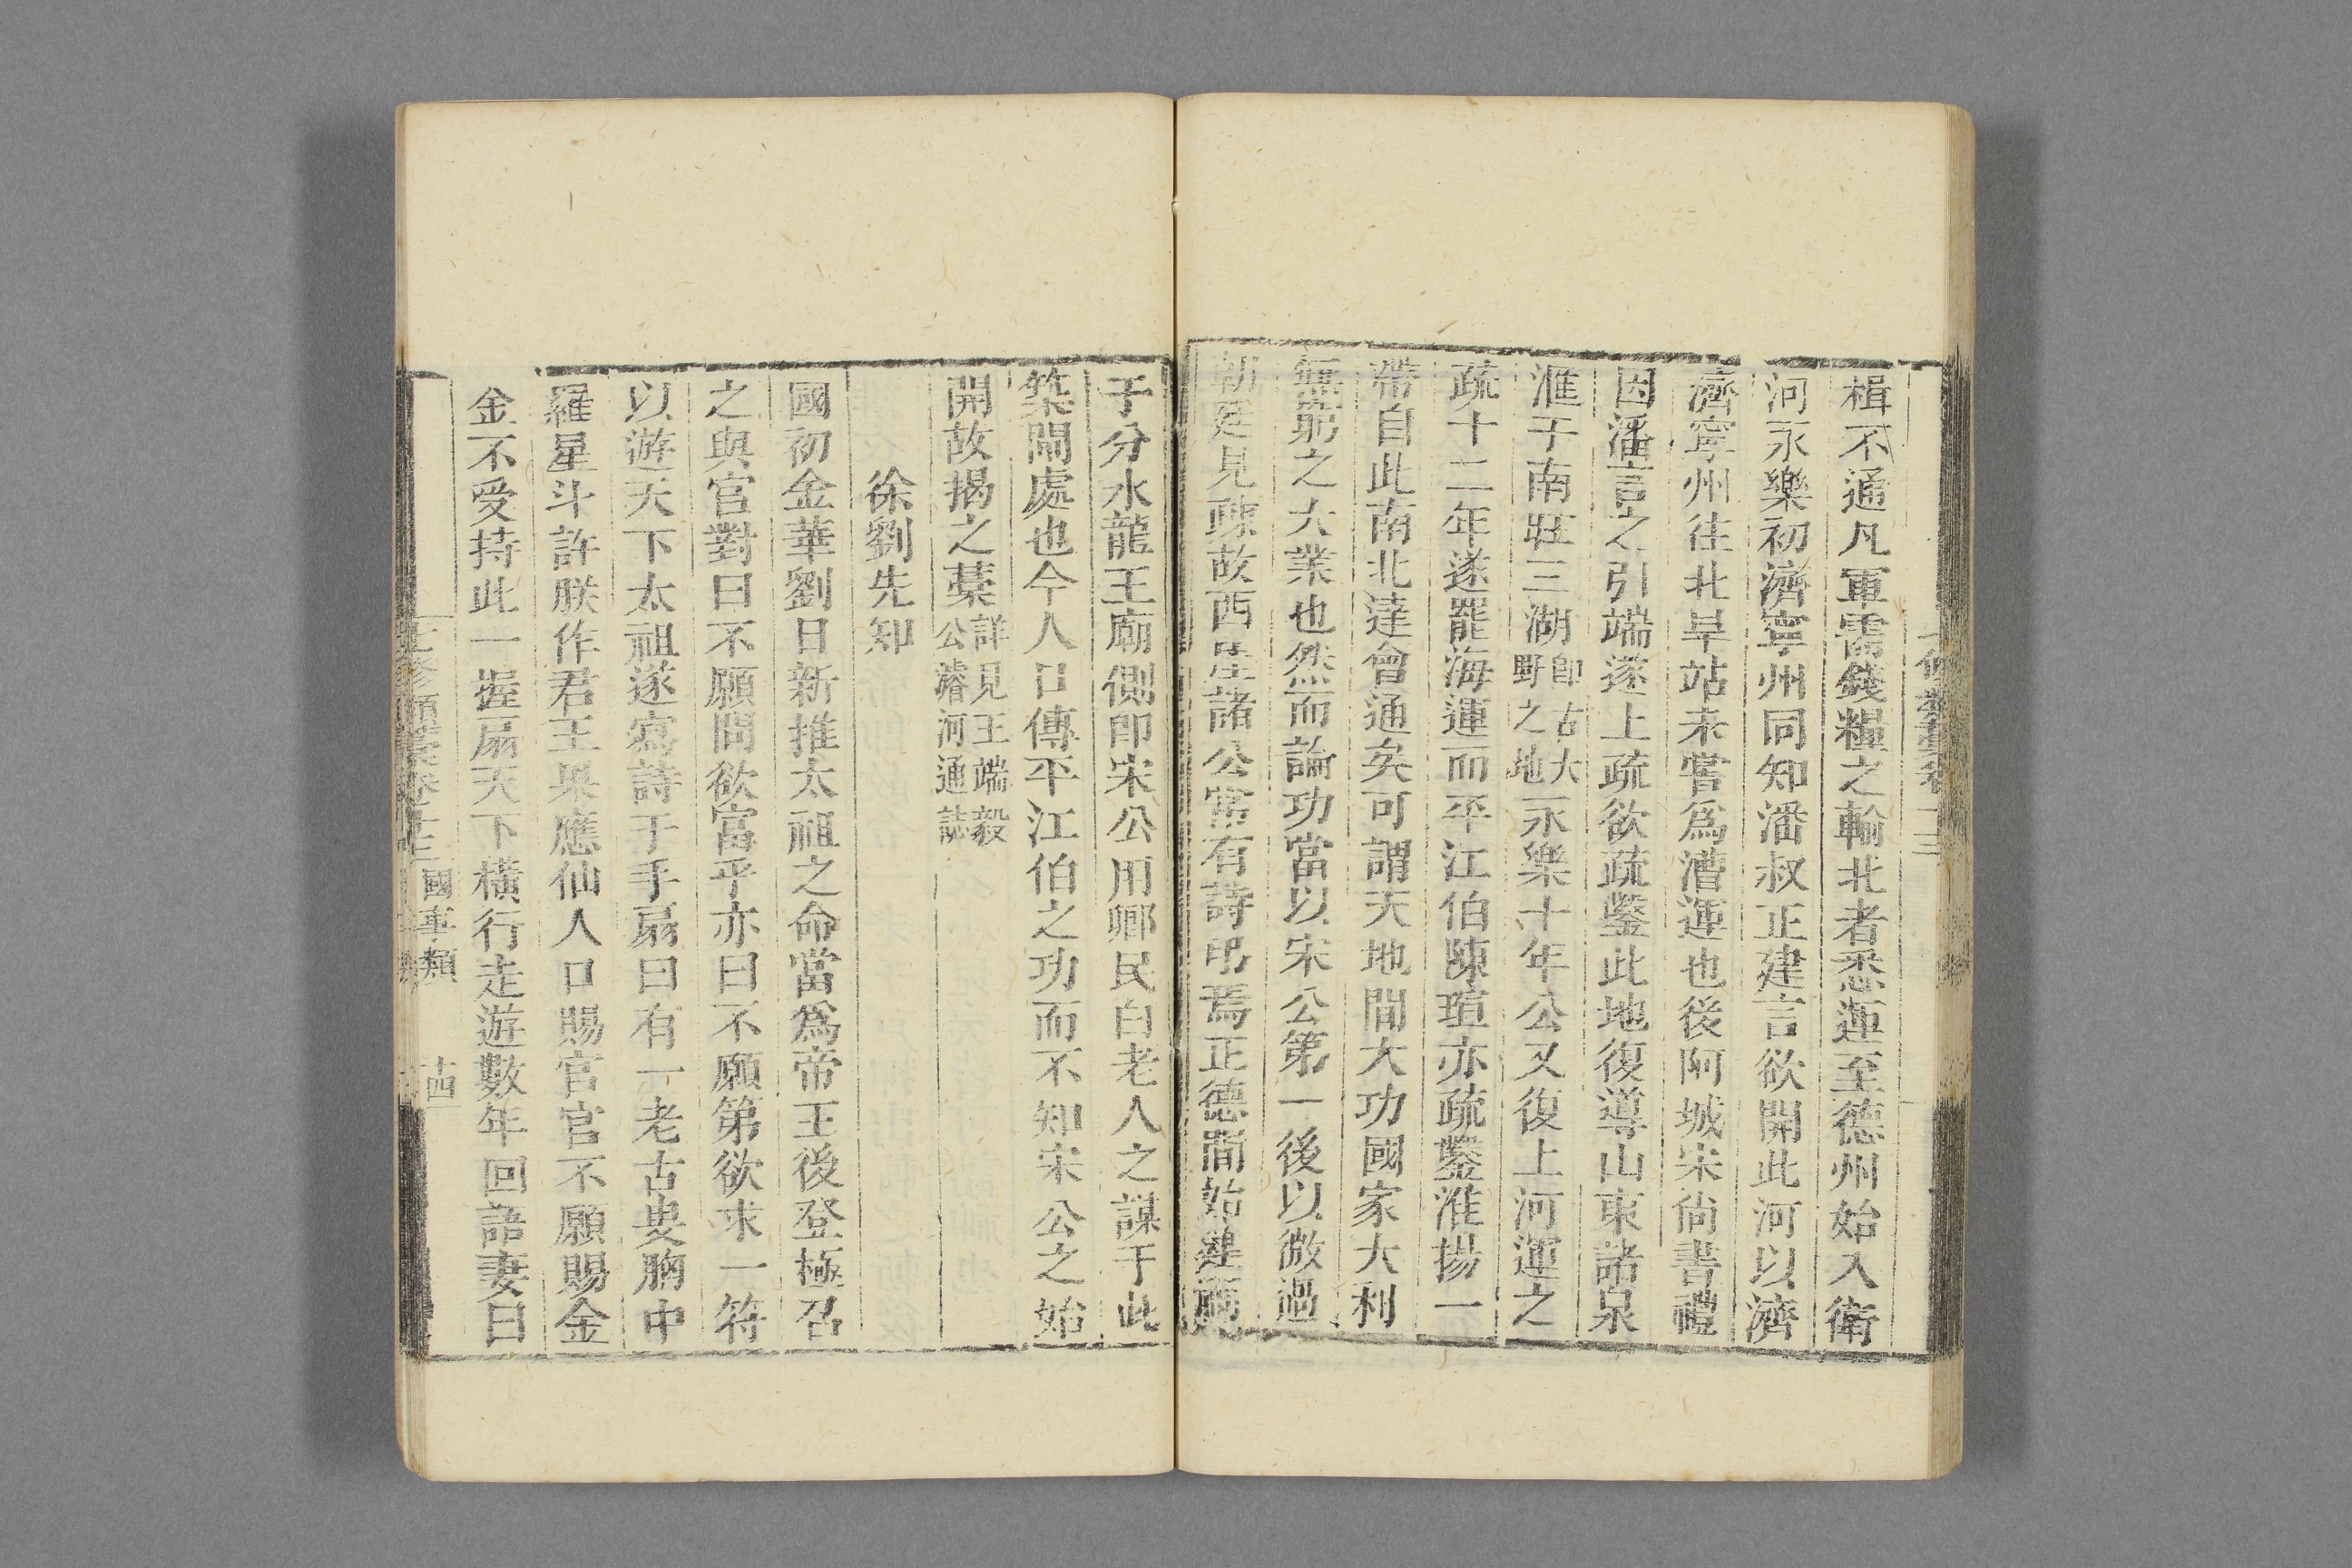 楫不通凡軍需錢糧之輸北者悉運至德州始入衛
河永樂初濟寧州同知潘叔正建言欲開此河以濟
濟寧州徃北旱站未嘗爲漕運也後阿城宋尚書禮
因潘言之引端遂上疏欲疏鑿此地復導山東諸泉
滙于南旺三湖卽古大野之地永樂十年公又復上河運之
疏十二年遂罷海運而平江伯陳瑄亦疏鑿淮揚一
帶自此南北達會通矣可謂天地間大功國家大利
無窮之大業也然而論功當以宋公第一後以微過
朝廷見疎故西涯諸公嘗有詩弔焉正德間始建廟
于分水龍王廟側卽宋公用鄉民白老人之謀于此
築閘處也今人口傳平江伯之功而不知宋公之始
開故揭之藁詳見王端毅公濬河通誌
徐劉先知
國初金華劉日新推太祖之命當爲帝王後登極召
之與官對曰不願問欲富乎亦曰不願第欲求一符
以游天下太祖遂寫詩于手扇曰有一老古叟胸中
羅星斗許朕作君王果應仙人口賜官官不願賜金
金不受持此一握扇天下橫行走遊數年回語妻曰
七修類藁卷十三 國事類 十四